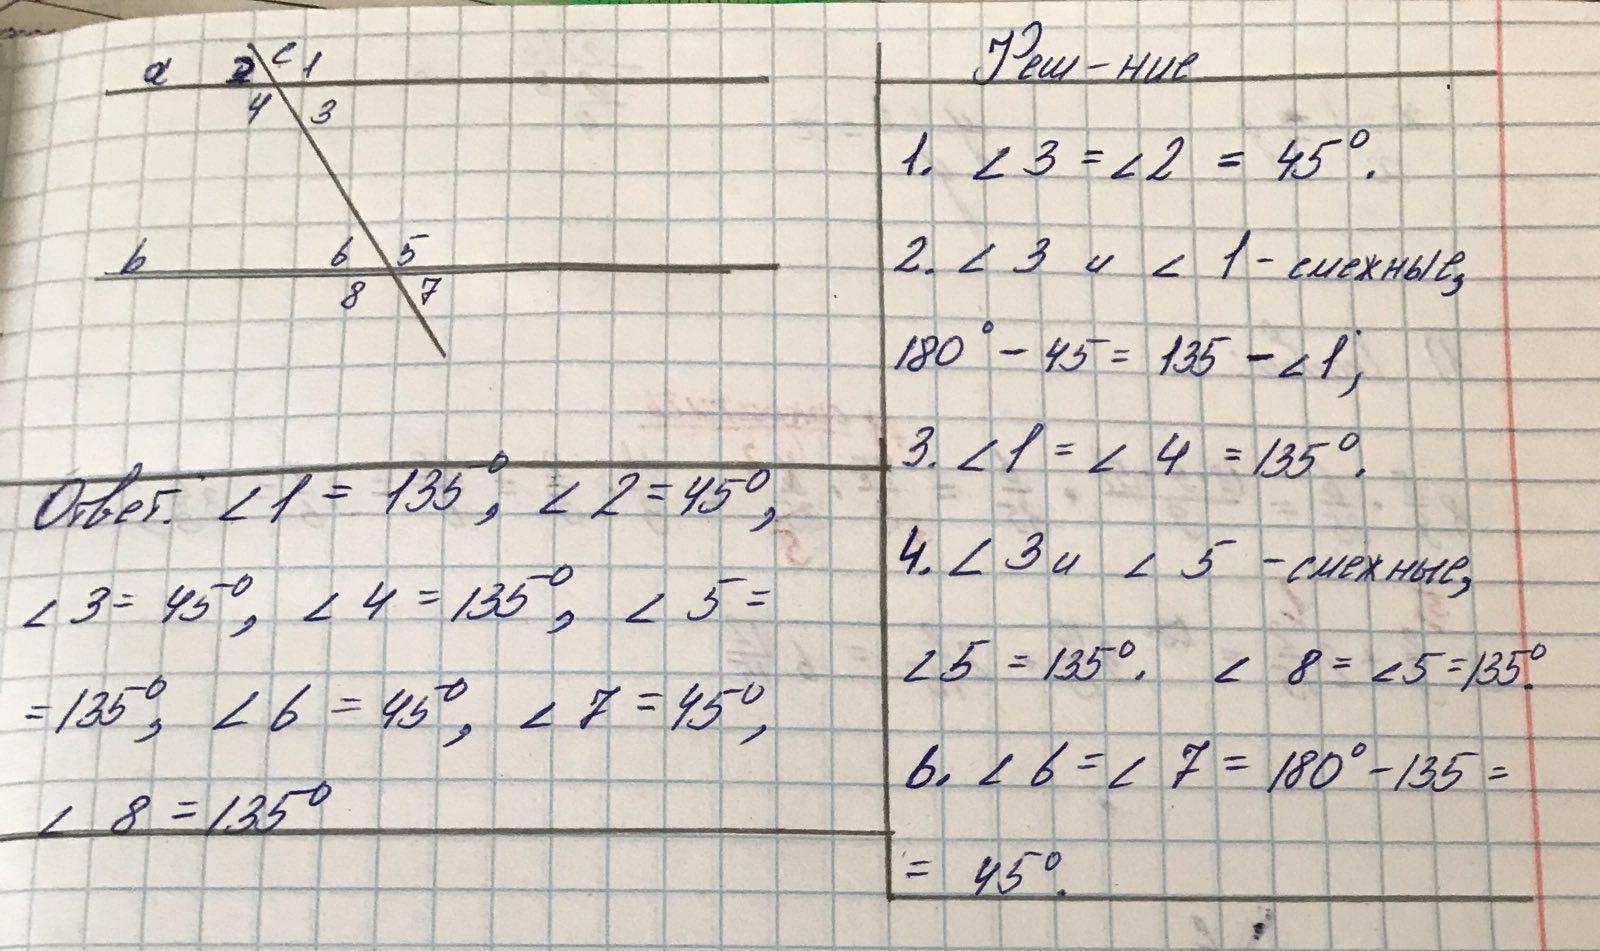 a 2 c 1
4 3
b 6 5
8 7
Ответ. ∠1 = 135°, ∠2 = 45°,
∠3 = 45°, ∠4 = 135°, ∠5 =
= 135°, ∠6 = 45°, ∠7 = 45°,
∠8 = 135°
Реш-ние
1. ∠3 = ∠2 = 45°.
2. ∠3 и ∠1 - смежные,
180° - 45 = 135 - ∠1;
3. ∠1 = ∠4 = 135°.
4. ∠3 и ∠5 - смежные,
∠5 = 135°. ∠8 = ∠5 = 135°.
6. ∠6 = ∠7 = 180° - 135 =
= 45°.